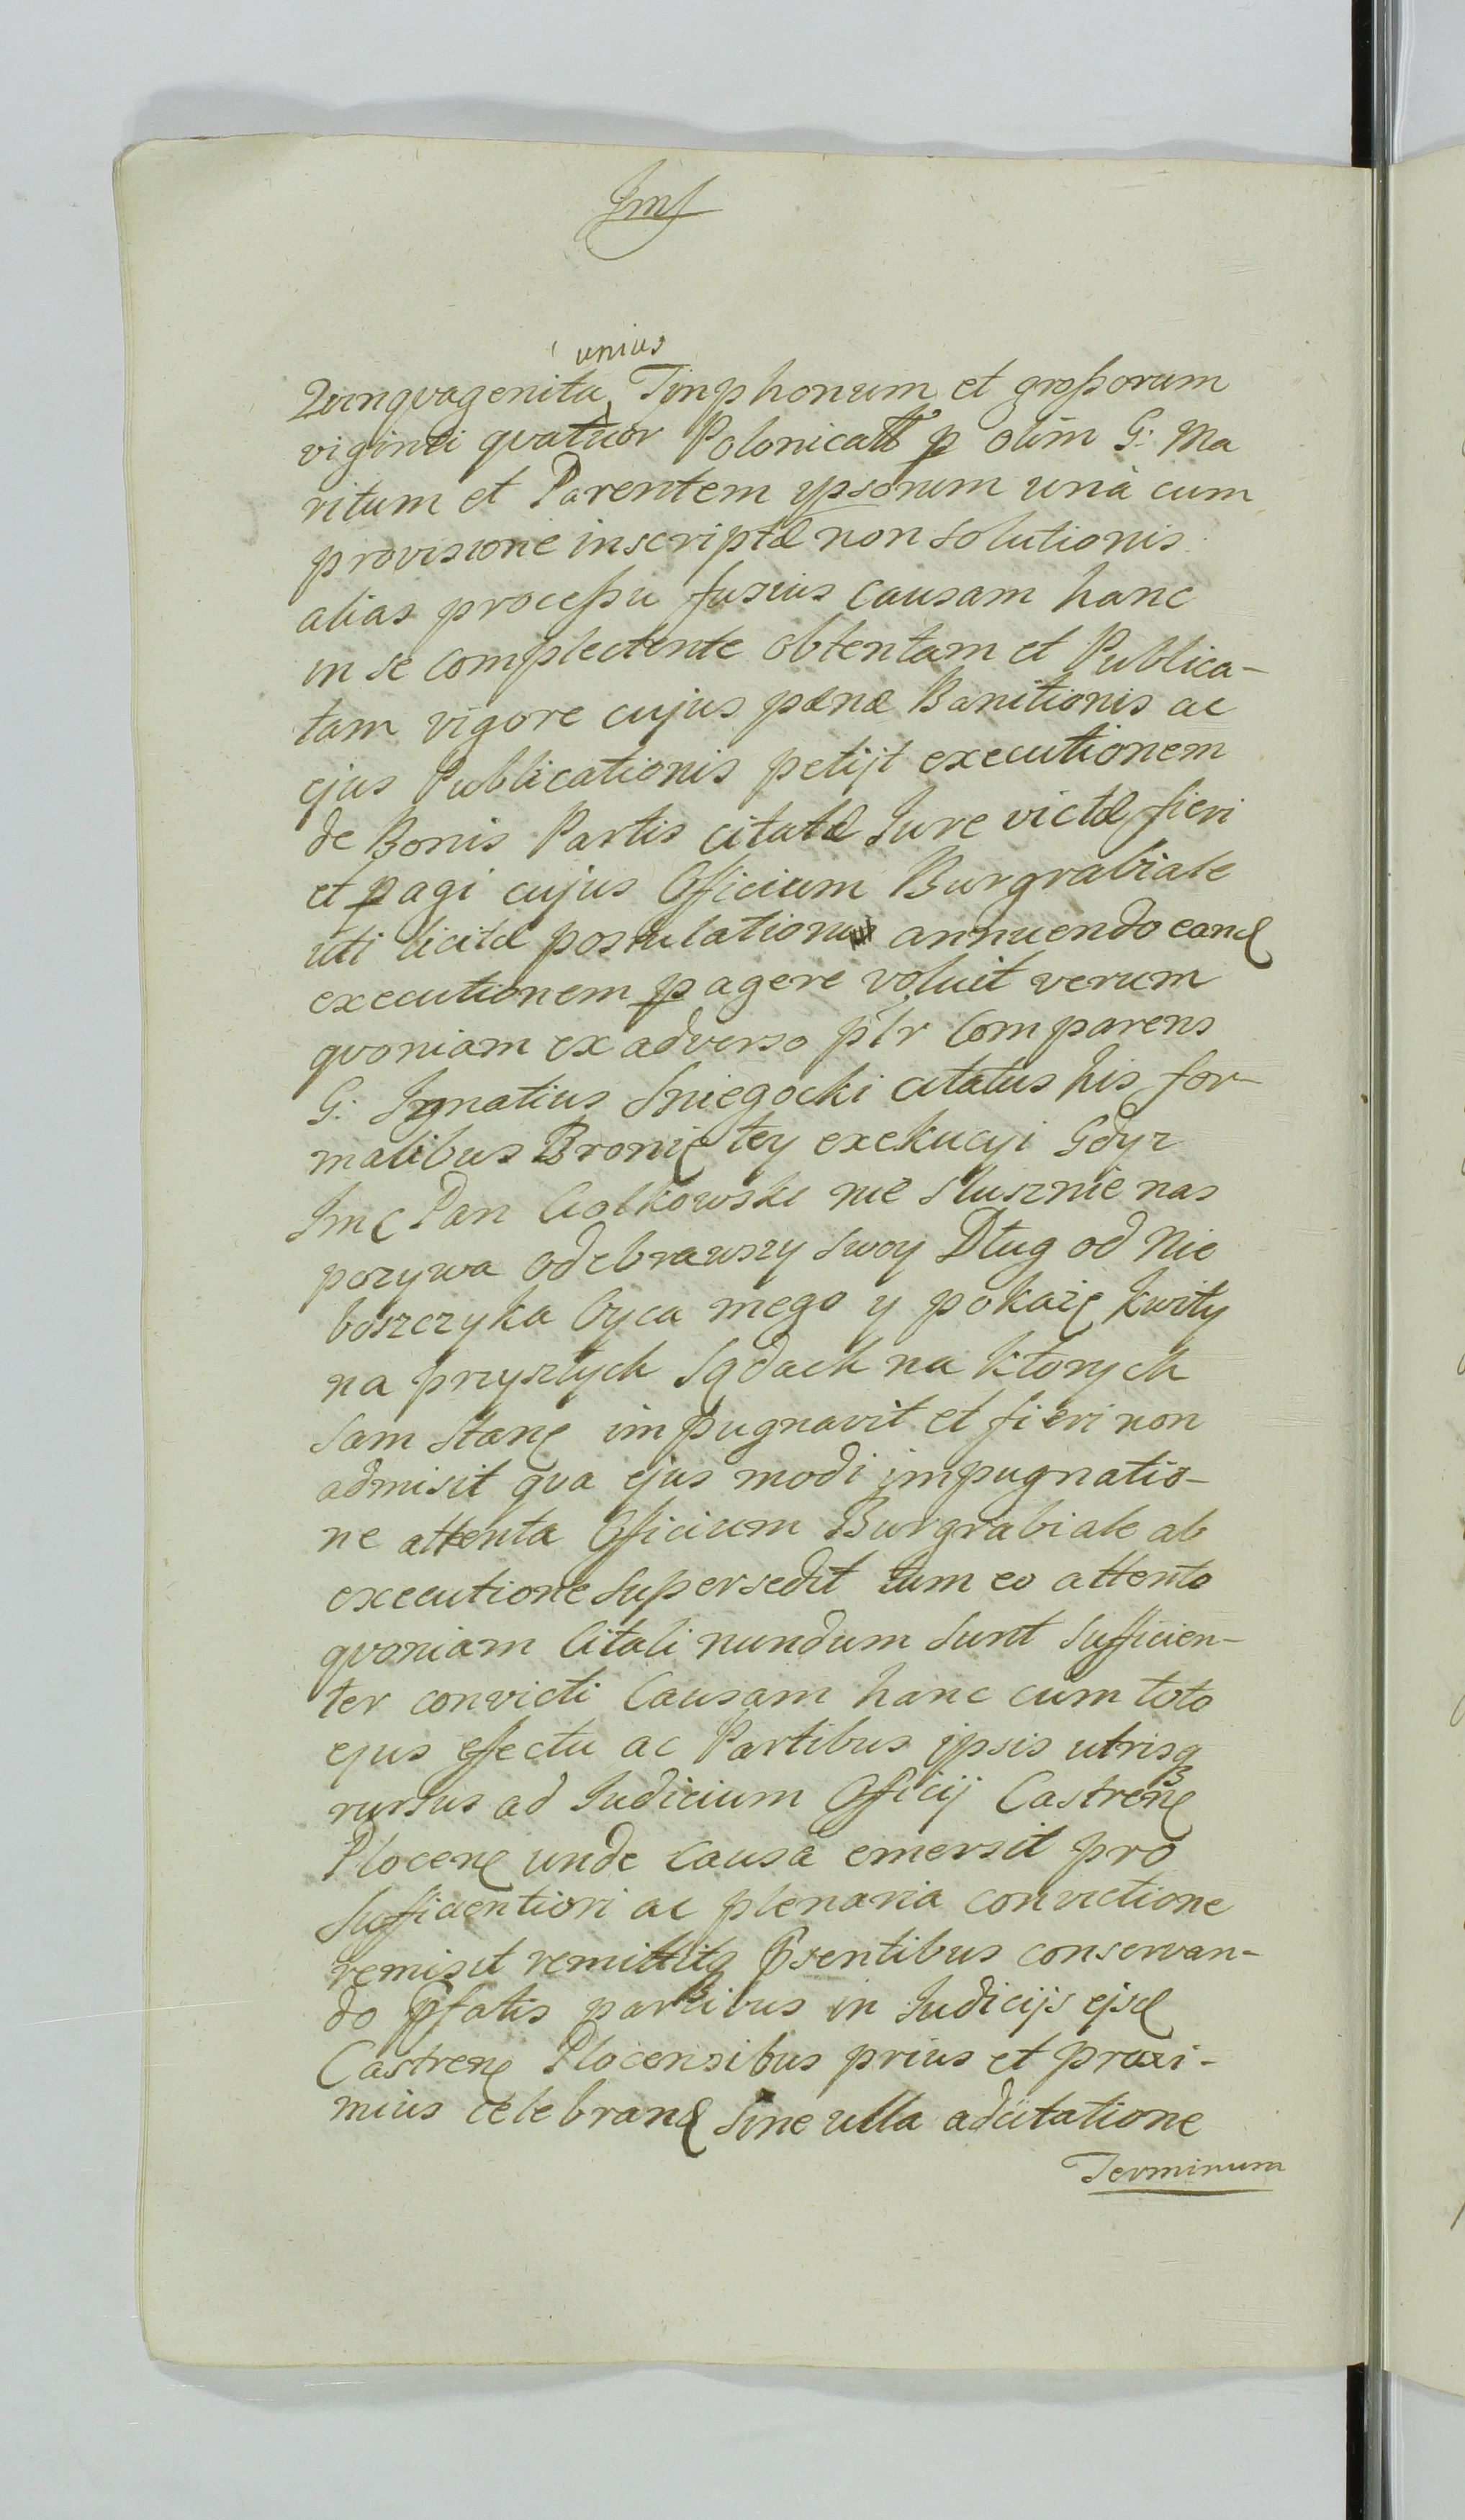 unius
Quinqvagenita Timphonum et grossorum
viginti qvatuor Polonicall p olim G: Ma
ritum et Parentem ypsorum unà cum
provisione inscriptæ non solutionis
alias processu fusius causam hanc
in se complectente obtentam et Publica-
tam vigore cujus pænæ Banitionis ac
ejus Publicationis petijt executionem
de Bonis Partis citatæ Jure victæ fieri
et pagi cujus Officium Burgrabiale
uti licitæ postulationi annuendo eand
executionem pagere voluit verum
qvoniam ex adverso plr Comparens
G: Ignatius Sniegocki citatus his for-
malibus Bronię tey exekucyi Gdyz
Imc Pan Ciołkowski nie słusznie nas
pozywa odebrawszy swoy Dług od Nie
boszczyka Oyca mego y pokażę kwity
na przyszłych Sądach na ktorych
sam stanę impugnavit et fieri non
admisit qua ejus modi impugnatio-
ne attenta Officium Burgrabiale ab
executione supersedit tum eo attento
qvoniam Citati nundum sunt sufficien-
ter convicti Causam hanc cum toto
ejus effectu ac Partibus ipsis utrisq
rursus ad Judicium Officij Castrens
Plocens unde causa emersit pro
sufficientiori ac plenaria convictione
remisit remittitq Psentibus conservan-
do pfatis partibus in Judicijs ejsd
Castrens Plocensibus prius et proxi-
mius celebrand sine ulla adcitatione
Terminum